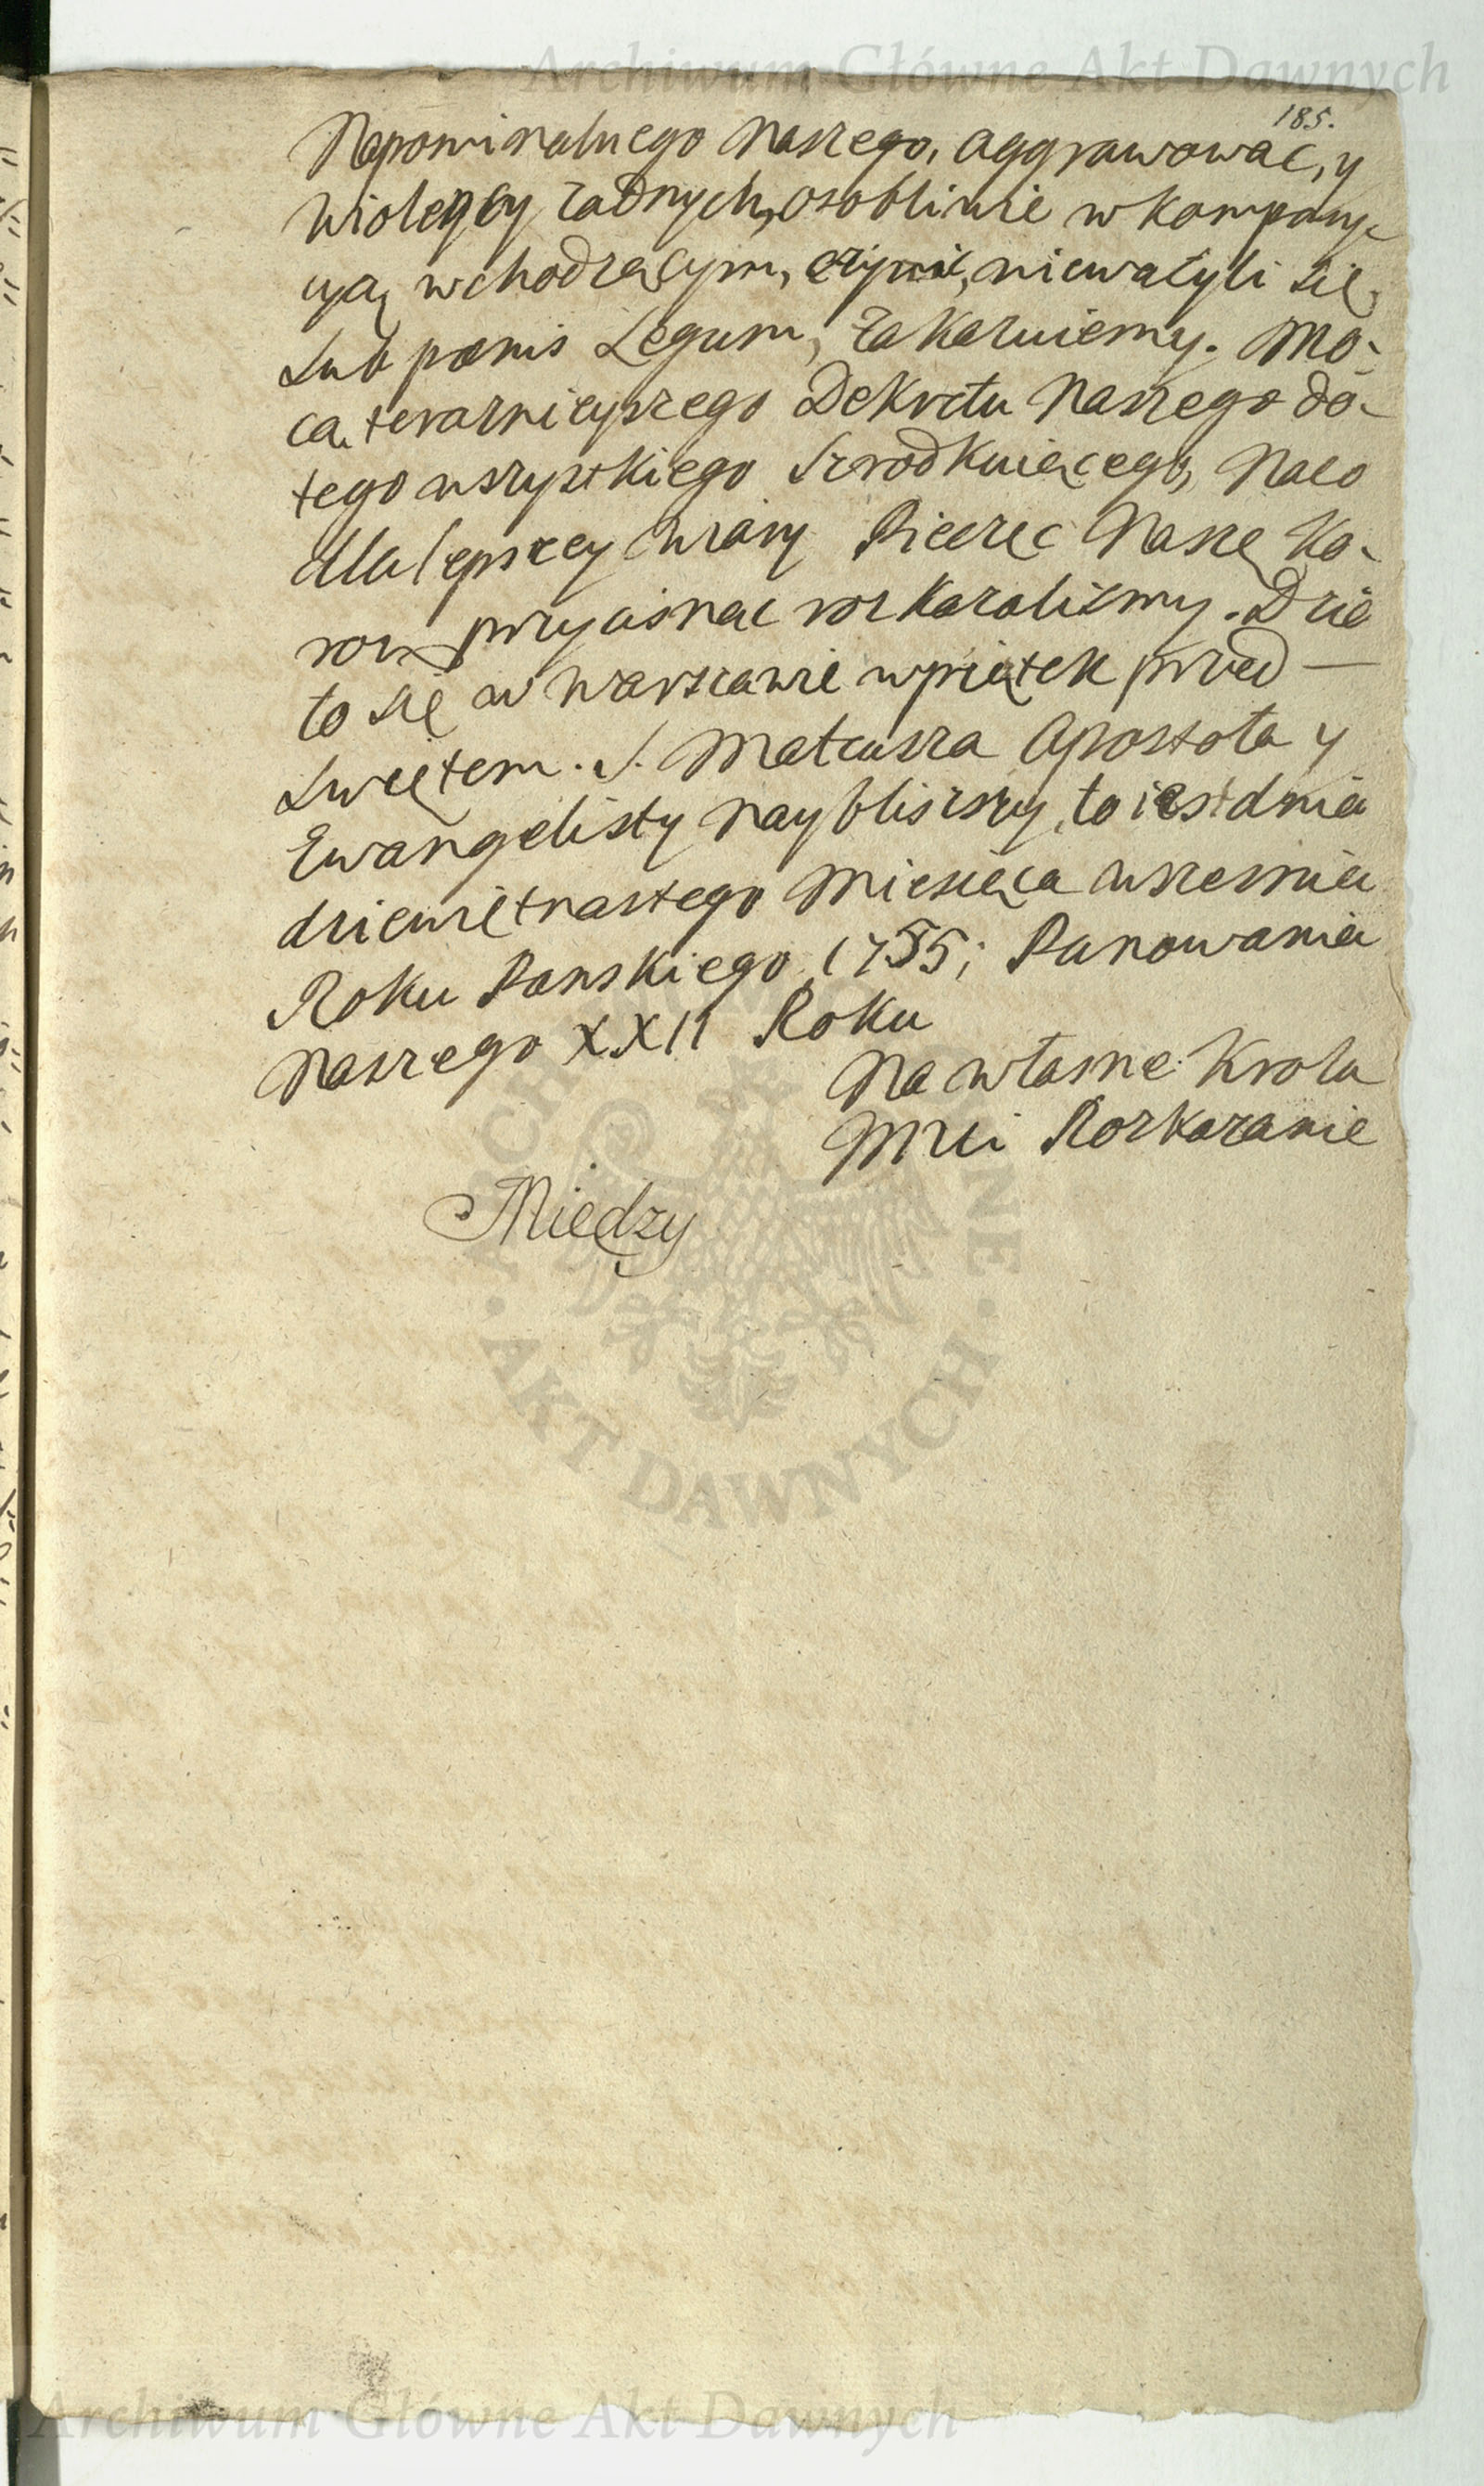 Archiwum Główne Akt Dawnych
185.
Napominalnego Naszego, aggrawowac, y
Wiolency zadnych, osobliwie w kompozy-
cyą wchodzącym, czynić, nieważyli się,
Sub pœnis Legum, zakazuiemy. Mo-
cą teraznieyszego Dekretu Naszego do-
tego wszystkiego Szrodkuiącego, Naco
dla lepszey wiary Pieczęc Naszę Ko-
ron: przycisnac rozkazalismy. Dzia
to się w Warszawie w piątek przed —
Swiętem. S. Mateusza Apostoła y
Ewangelisty nayblizszy, to iest dnia
dziewiętnastego Miesiąca Wrzesnia
Roku Panskiego 1755; Panowania
Naszego XXII Roku
Na własne Krola
Mci Rozkazanie
Między
ARCHIWUM GŁÓWNE
· AKT DAWNYCH ·
Archiwum Główne Akt Dawnych